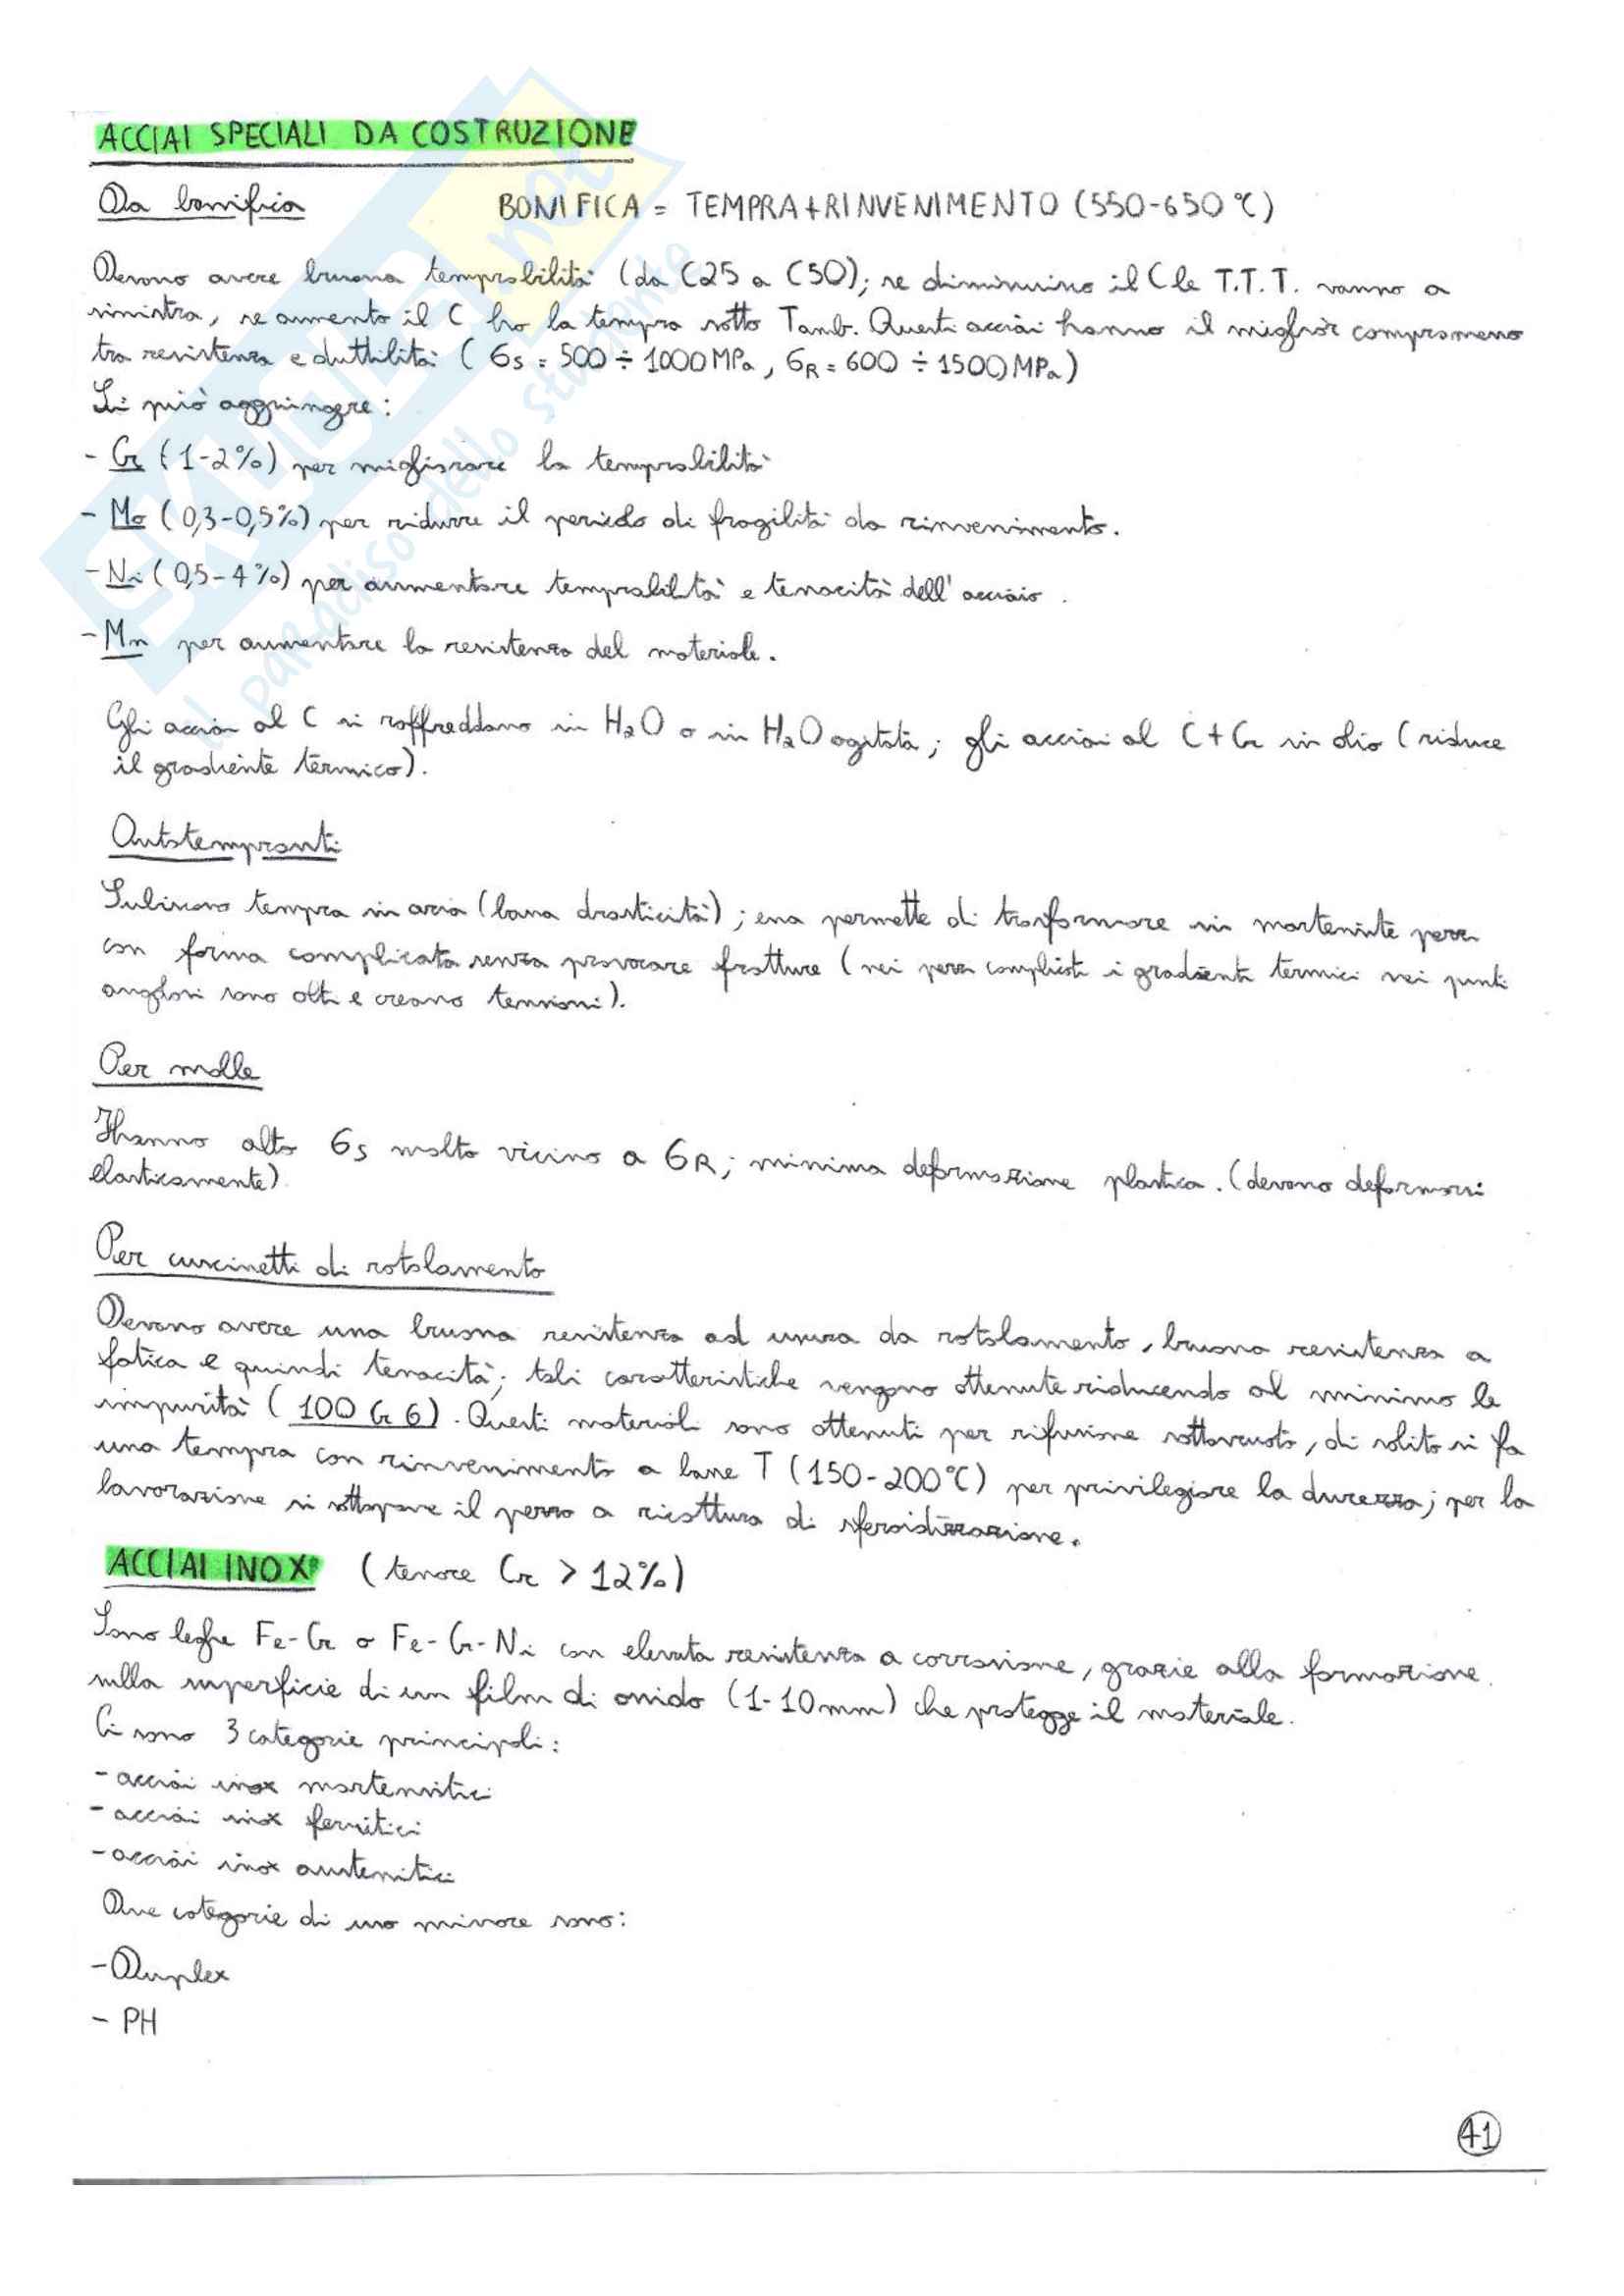 ACCIAI SPECIALI DA COSTRUZIONE
Da bonifica BONIFICA = TEMPRA+RINVENIMENTO (550-650 °C)
Devono avere buona temprabilità (da C25 a C50); se diminuisco il C le T.T.T. vanno a
sinistra, se aumento il C ho la tempra sotto Tamb. Questi acciai hanno il miglior compromesso
tra resistenza e duttilità (σs = 500 ÷ 1000 MPa, σR = 600 ÷ 1500 MPa)
Si può aggiungere:
- Cr (1-2%) per migliorare la temprabilità
- Mo (0,3-0,5%) per ridurre il pericolo di fragilità da rinvenimento.
- Ni (0,5-4%) per aumentare temprabilità e tenacità dell'acciaio.
- Mn per aumentare la resistenza del materiale.
Gli acciai al C si raffreddano in H₂O o in H₂O agitata; gli acciai al C+Cr in olio (riduce
il gradiente termico).
Autotempranti
Subiscono tempra in aria (bassa drasticità); essa permette di trasformare in martensite pezzi
con forma complicata senza provocare fratture (nei pezzi complicati i gradienti termici nei punti
angolosi sono alti e creano tensioni).
Per molle
Hanno alto σs molto vicino a σR; minima deformazione plastica. (devono deformarsi
elasticamente)
Per cuscinetti di rotolamento
Devono avere una buona resistenza ad usura da rotolamento, buona resistenza a
fatica e quindi tenacità; tali caratteristiche vengono ottenute riducendo al minimo le
impurità (100 Cr 6). Questi materiali sono ottenuti per rifusione sottovuoto, di solito si fa
una tempra con rinvenimento a basse T (150-200°C) per privilegiare la durezza; per la
lavorazione si sottopone il pezzo a ricottura di sferoidizzazione.
ACCIAI INOX (tenore Cr > 12%)
Sono leghe Fe-Cr o Fe-Cr-Ni con elevata resistenza a corrosione, grazie alla formazione
sulla superficie di un film di ossido (1-10mm) che protegge il materiale.
Ci sono 3 categorie principali:
- acciai inox martensitici
- acciai inox ferritici
- acciai inox austenitici
Due categorie di uso minore sono:
- Duplex
- PH
41
SKUOLA.net
il paradiso dello studente